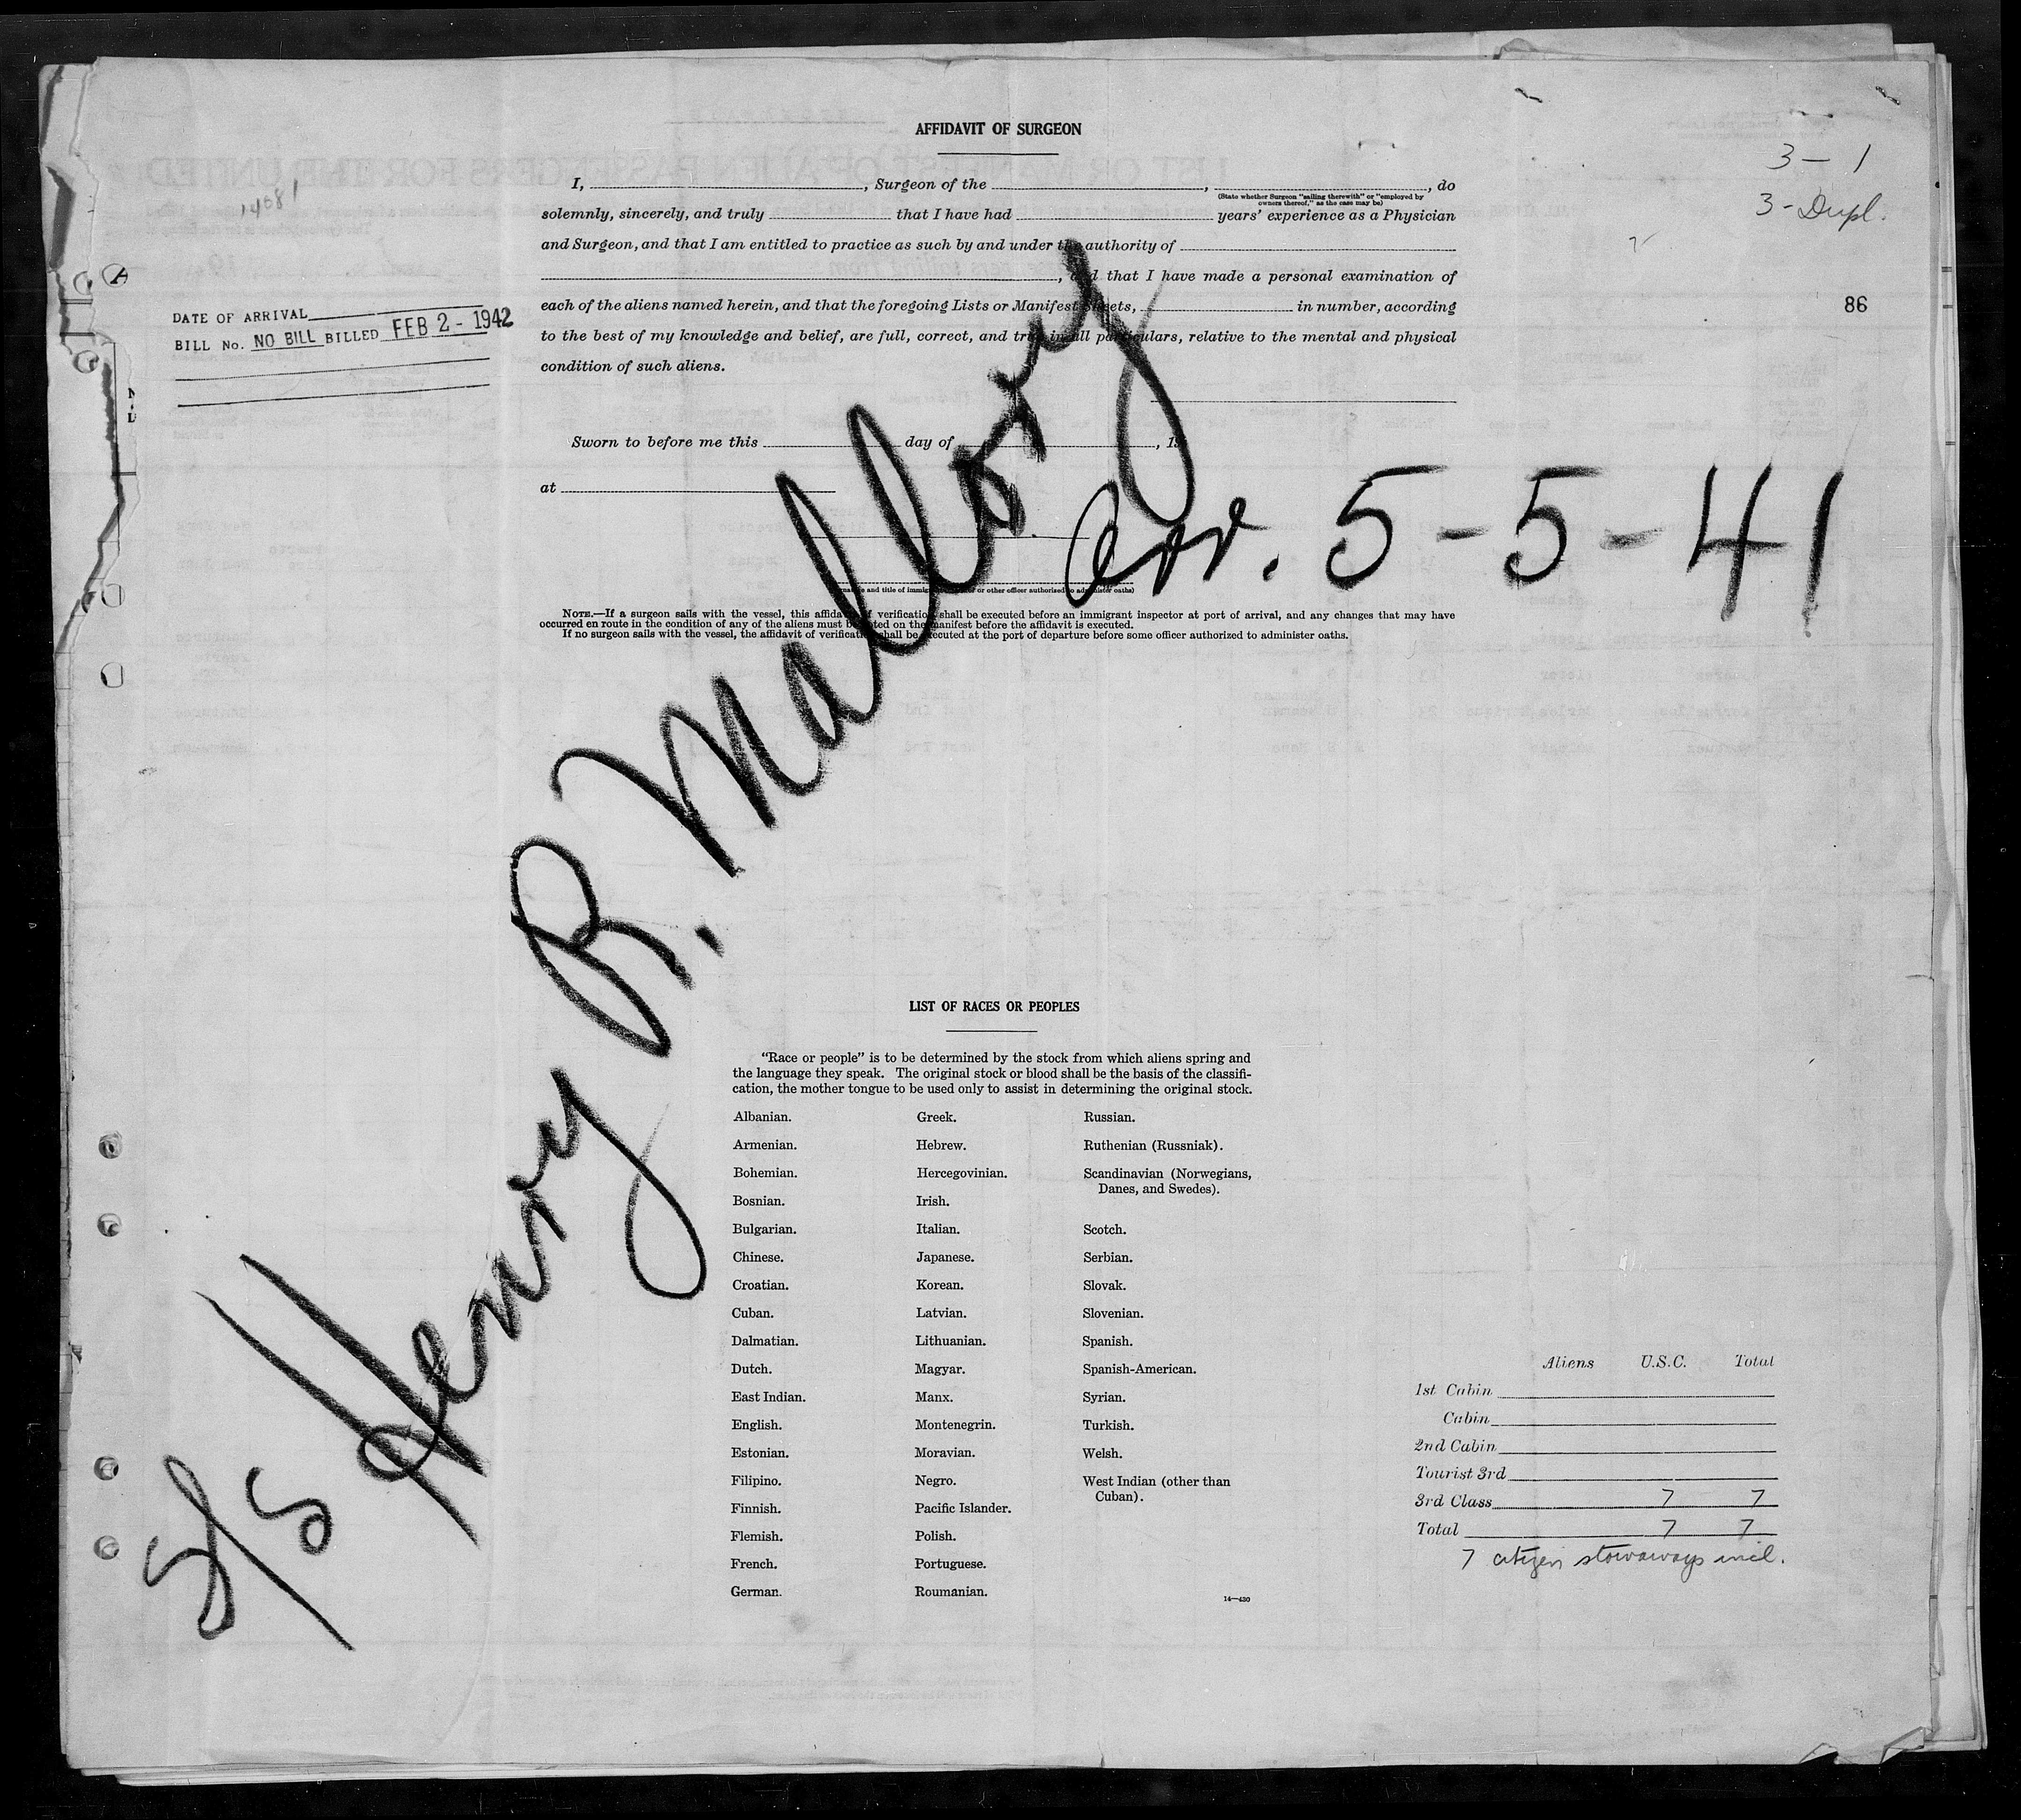 AFFIDAVIT OF SURGEON
3 - 1
3 - Dupl.
14581
I, , Surgeon of the , , do
(State whether Surgeon "sailing therewith" or "employed by
owners thereof," as the case may be)
solemnly, sincerely, and truly that I have had years' experience as a Physician
and Surgeon, and that I am entitled to practice as such by and under the authority of
, and that I have made a personal examination of
each of the aliens named herein, and that the foregoing Lists or Manifest Sheets, in number, according
to the best of my knowledge and belief, are full, correct, and true in all particulars, relative to the mental and physical
condition of such aliens.
86
DATE OF ARRIVAL
BILL No. NO BILL BILLED FEB 2 - 1942
Sworn to before me this day of , 19
at
Arr. 5-5-41
S/S Henry R. Mallory
(Signature and title of immigrant inspector or other officer authorized to administer oaths)
NOTE.—If a surgeon sails with the vessel, this affidavit of verification shall be executed before an immigrant inspector at port of arrival, and any changes that may have
occurred en route in the condition of any of the aliens must be noted on the manifest before the affidavit is executed.
If no surgeon sails with the vessel, the affidavit of verification shall be executed at the port of departure before some officer authorized to administer oaths.
LIST OF RACES OR PEOPLES
"Race or people" is to be determined by the stock from which aliens spring and
the language they speak. The original stock or blood shall be the basis of the classifi-
cation, the mother tongue to be used only to assist in determining the original stock.
Albanian.
Armenian.
Bohemian.
Bosnian.
Bulgarian.
Chinese.
Croatian.
Cuban.
Dalmatian.
Dutch.
East Indian.
English.
Estonian.
Filipino.
Finnish.
Flemish.
French.
German.
Greek.
Hebrew.
Hercegovinian.
Irish.
Italian.
Japanese.
Korean.
Latvian.
Lithuanian.
Magyar.
Manx.
Montenegrin.
Moravian.
Negro.
Pacific Islander.
Polish.
Portuguese.
Roumanian.
Russian.
Ruthenian (Russniak).
Scandinavian (Norwegians,
Danes, and Swedes).
Scotch.
Serbian.
Slovak.
Slovenian.
Spanish.
Spanish-American.
Syrian.
Turkish.
Welsh.
West Indian (other than
Cuban).
14—430
Aliens U.S.C. Total
1st Cabin
Cabin
2nd Cabin
Tourist 3rd
3rd Class 7 7
Total 7 7
7 citizen stowaways incl.